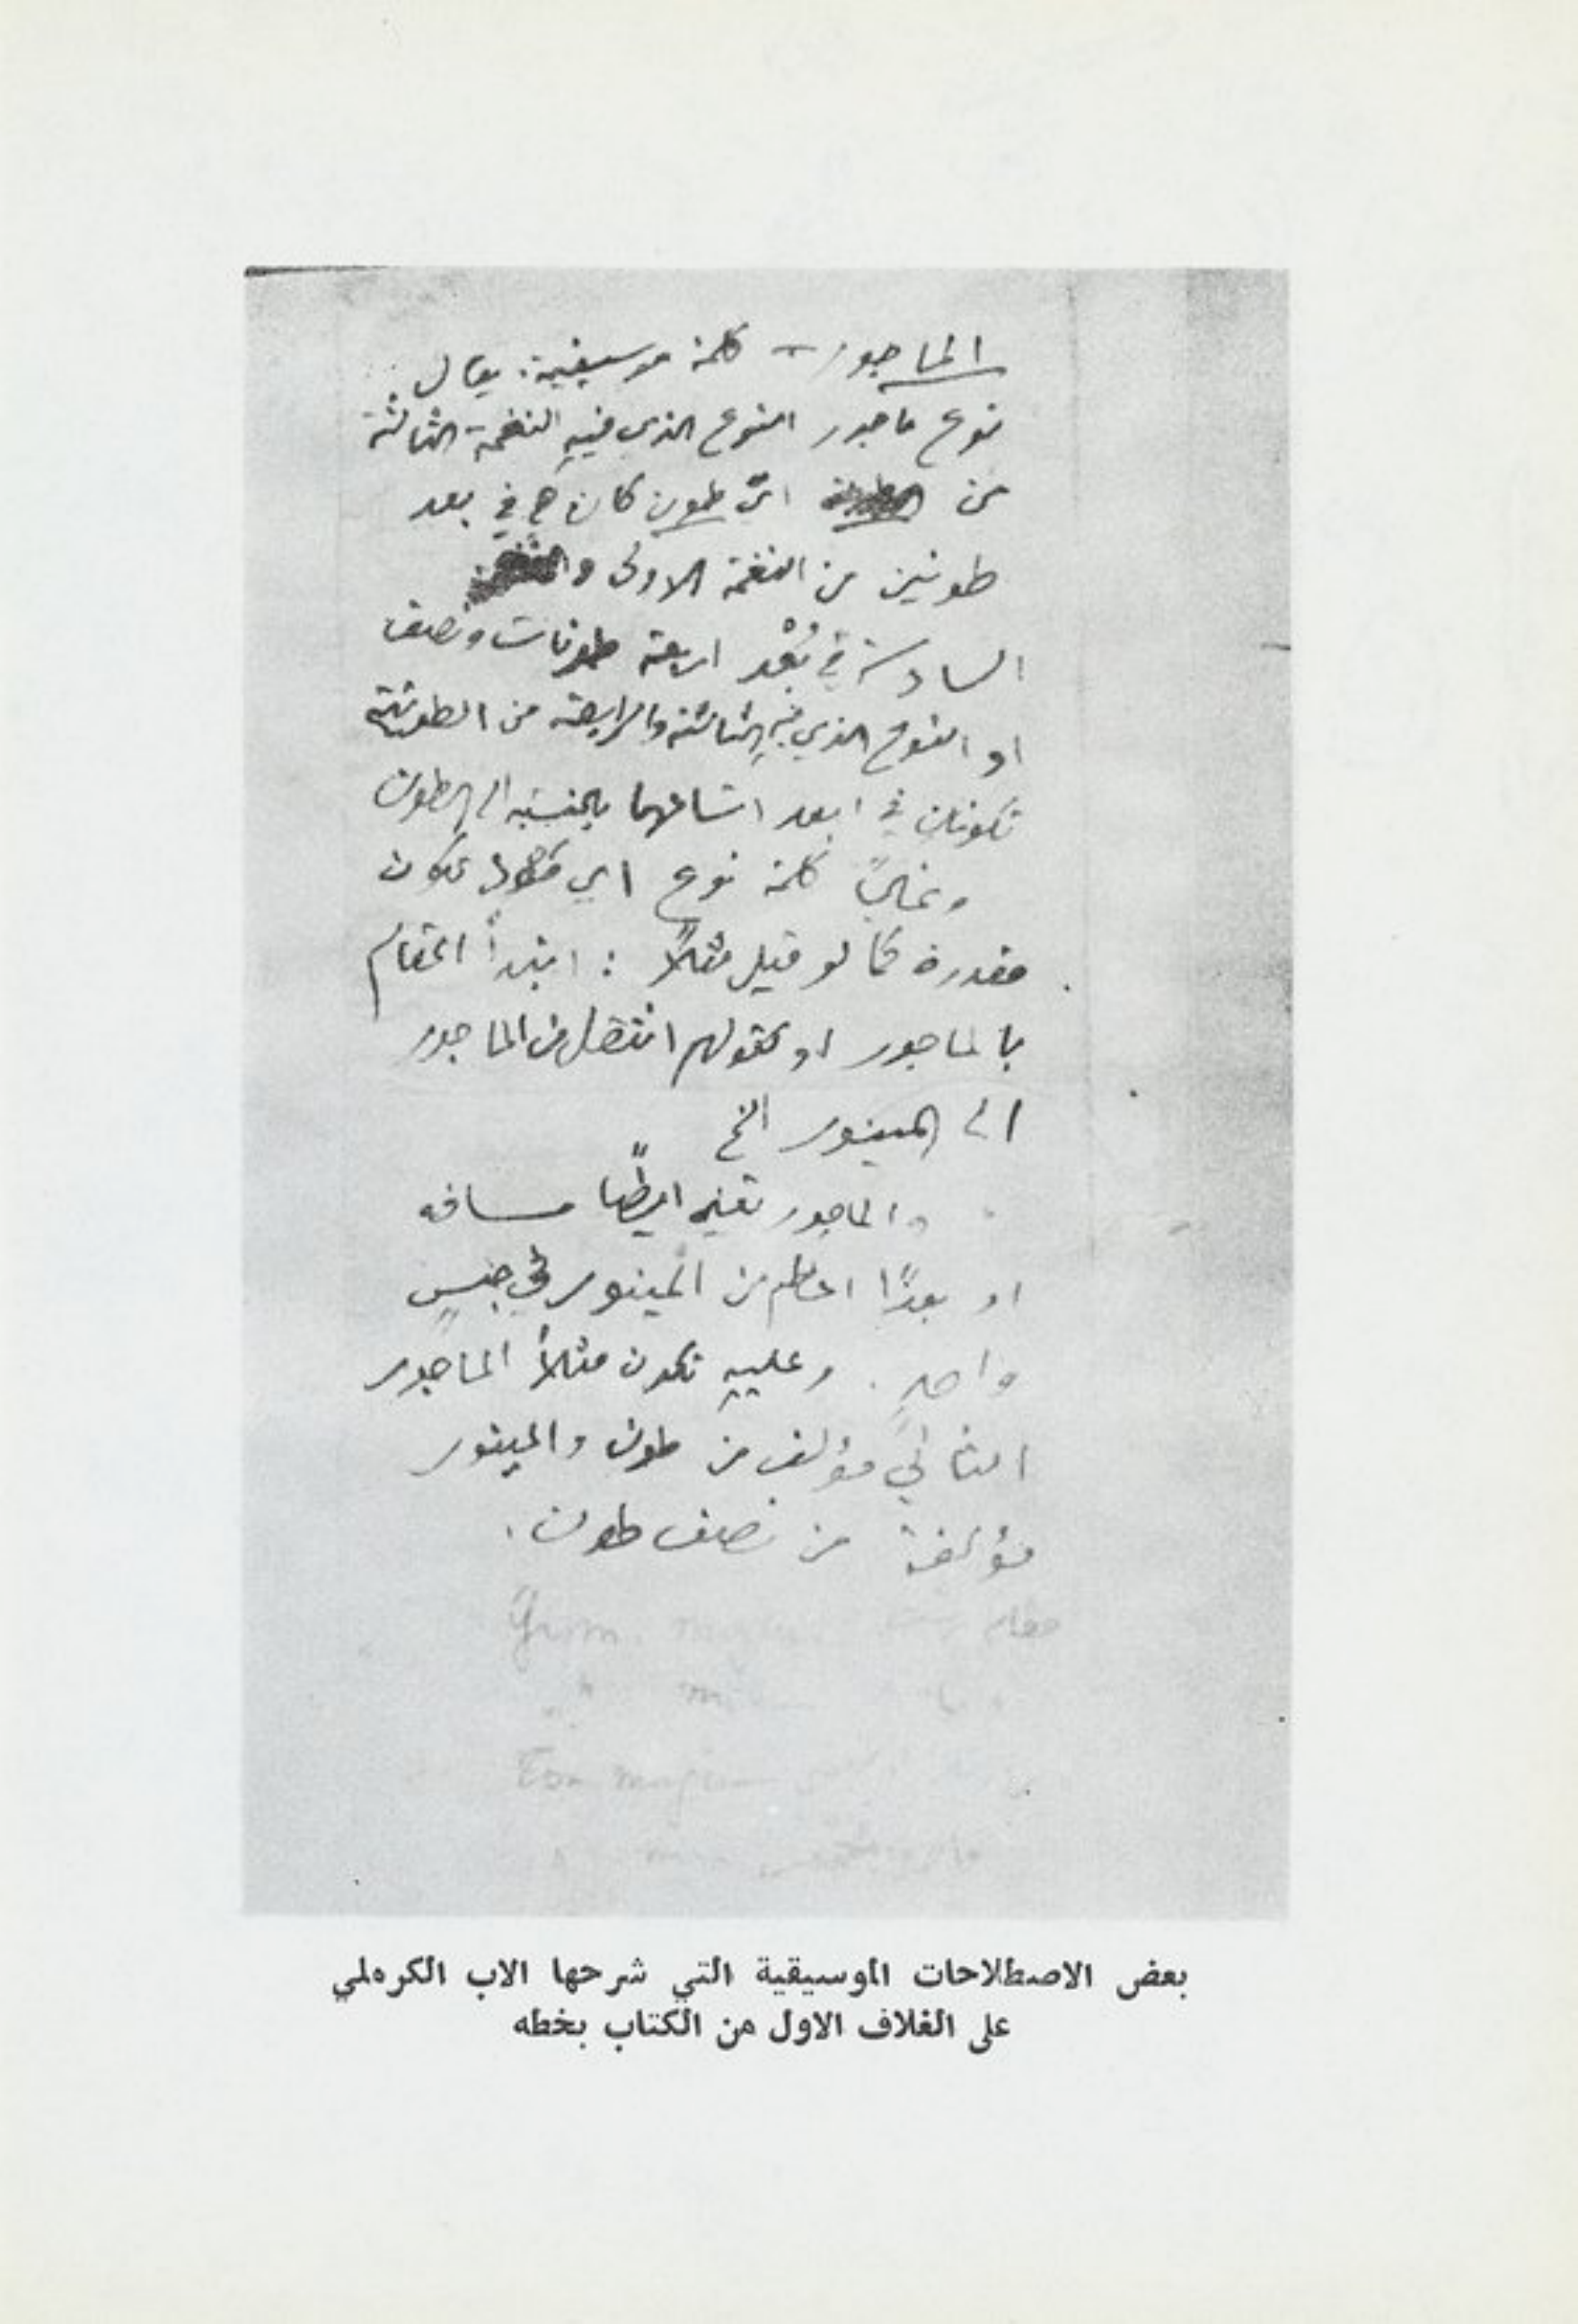 الماجور – كلمة موسيقية. يقال
نوع ماجور النوع الذي فيهِ النغمة الثالثة
من ايّ طون كان هي في بعد
طونين من النغمة الاولى و
السادسة في بُعْد اربعة طونات ونصف
او النوع الذي فيهِ الثالثة والرابعة من الطونيّة
تكونان في ابعد اتساعهما بالنسبة الى الطون
وغالبًا كلمة نوع اي تكون
مقدرة كما لو قيل مثلاً : ابتدأ المقام
بالماجور او كقولهم انتقل من الماجور
الى المينور الخ
والماجور تفيد ايضًا مسافه
او بعدًا اعظم من المينور في جنسٍ
واحدٍ . وعليهِ تكون مثلاً الماجور
الثاني مؤلف من طون والمينور
مؤلفة من نصف طون .
مقام
بعض الاصطلاحات الموسيقية التي شرحها الاب الكرملي
على الغلاف الاول من الكتاب بخطه